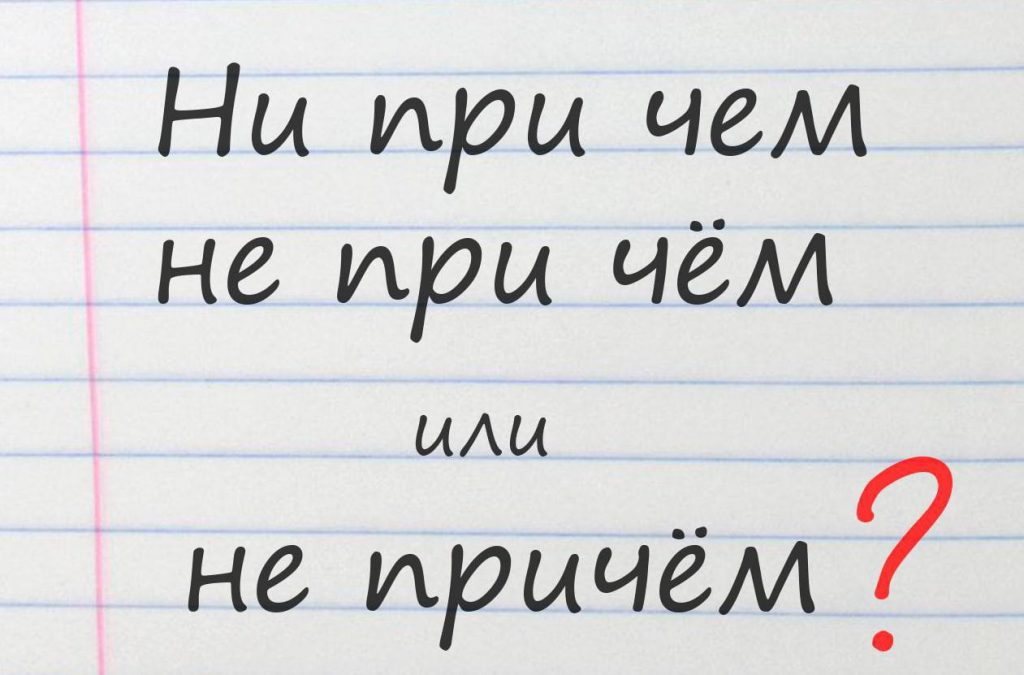 Ни при чем
не при чём
или
не причём ?